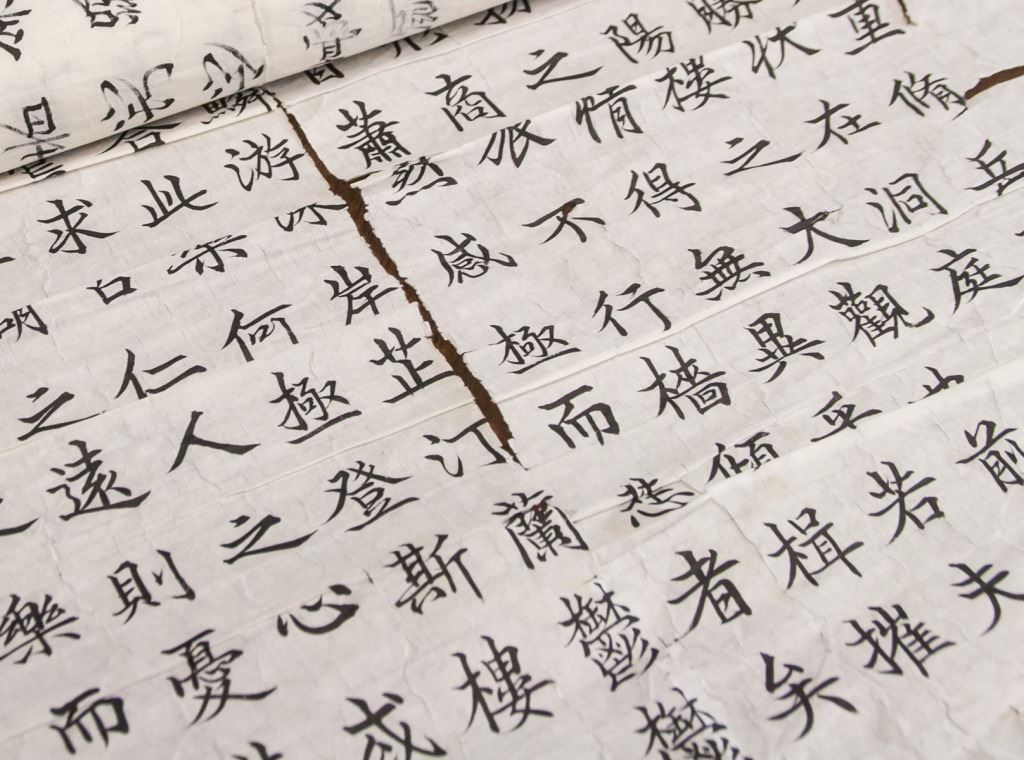 重脩岳
勝狀在洞庭
陽樓之大觀也前
之情得無異乎若夫
商旅不行檣傾楫摧
蕭然感極而悲者矣
游泳岸芷汀蘭鬱鬱
此樂何極登斯樓
求古仁人之心或
之遠則憂
樂而